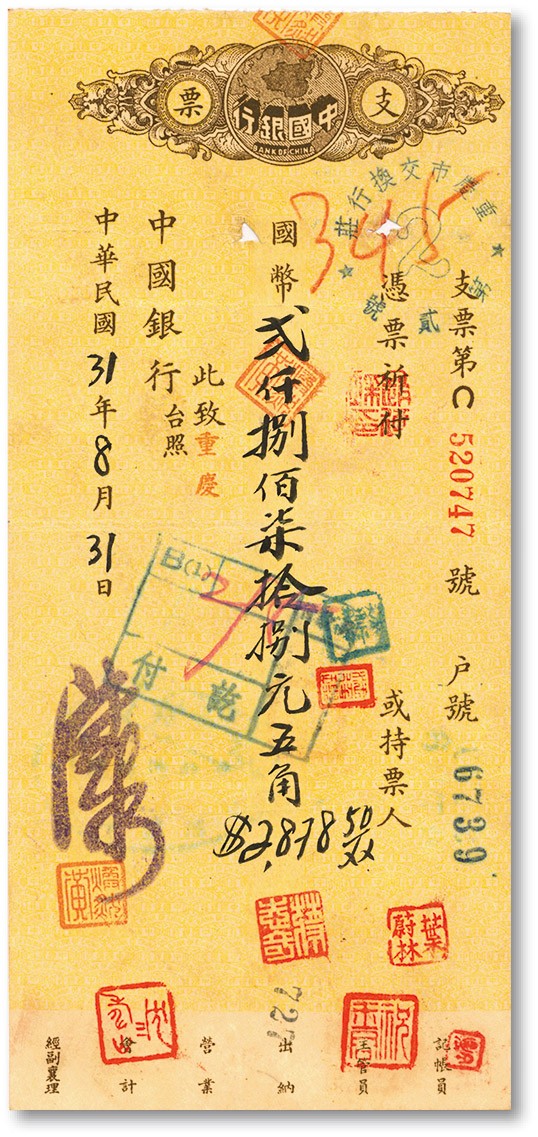 支票
中國銀行
BANK OF CHINA
重慶市交換行莊
第貳號
2
345
支票第C 520747 號 戶號 6739
憑票祈付 或持票人
國幣 弍仟捌佰柒拾捌元五角
$2,878 50/XX
此致重慶
中國銀行台照
中華民國31年8月31日
B(1)
乾付
葉蔚林
727
記帳員
主管員
出納
營業
會計
經副襄理